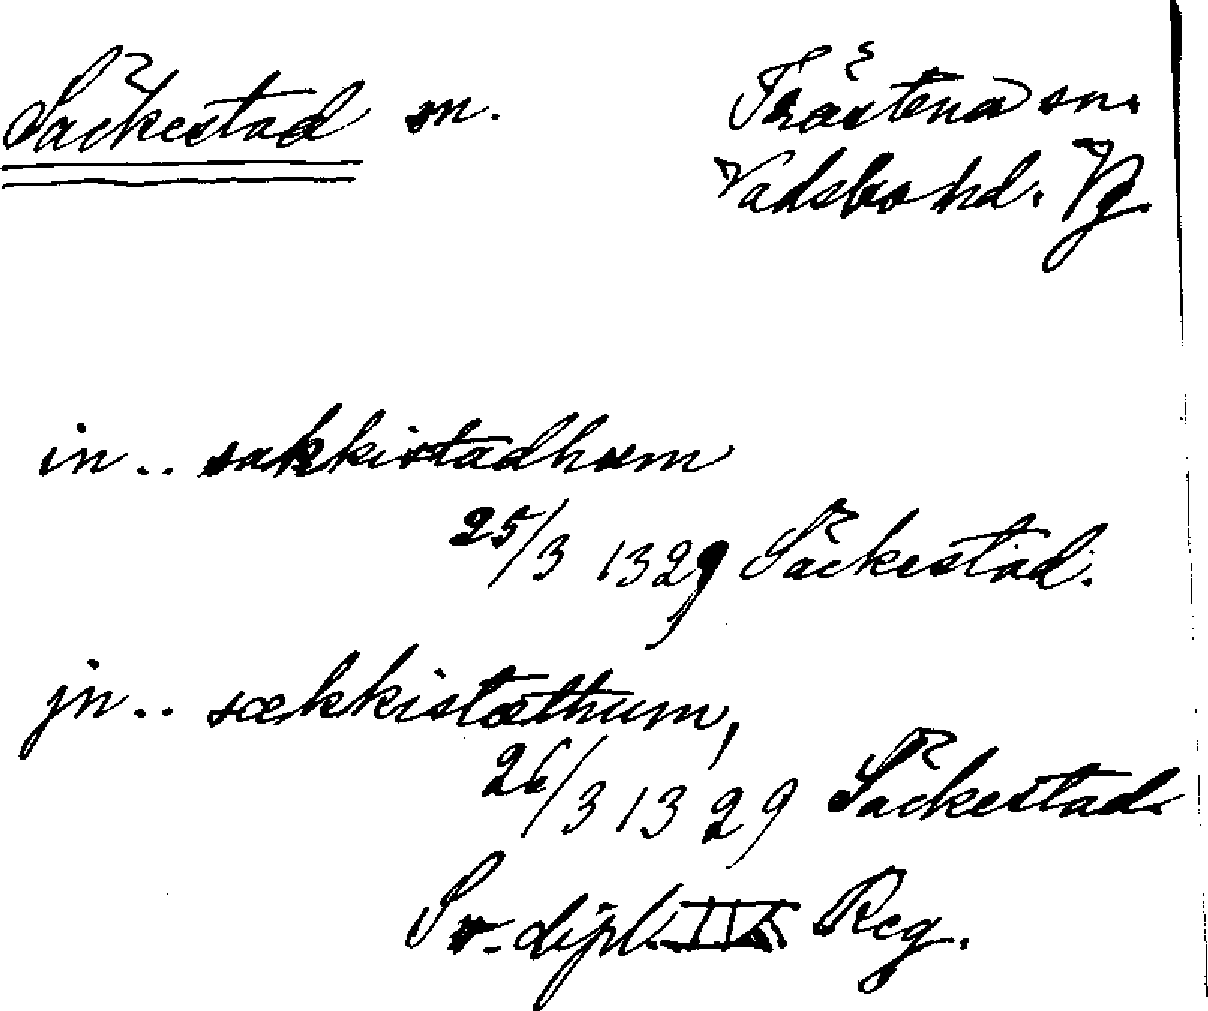 Säckestad sn. Trästena sn.
Vadsbo hd. Vg.
in.. sakkistadhum
25/3 1329 Säckestad.
jn.. sækkistæthum,
26/3 1329 Säckestad.
Sv. dipl. Reg.